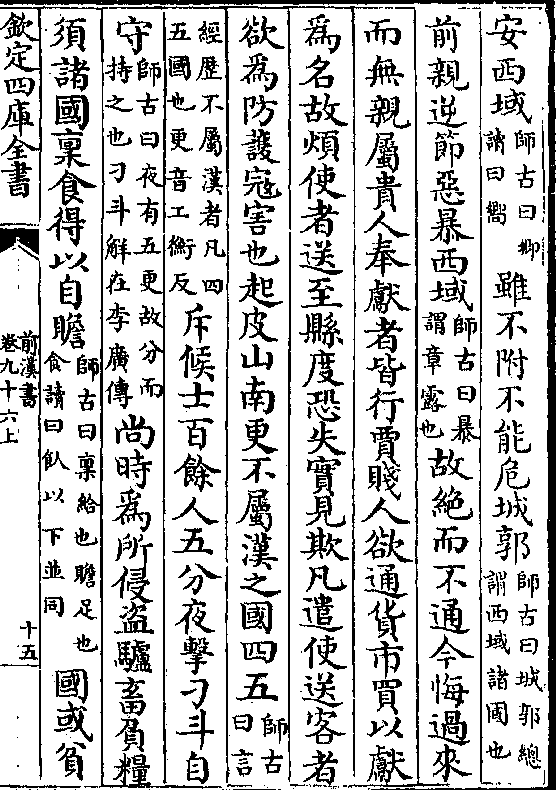 安西域師古曰鄉讀曰嚮雖不附不能危城郭師古曰城郭總謂西域諸國也
前親逆節惡暴西域師古曰暴謂章露也故絶而不通今悔過來
而無親屬貴人奉獻者皆行賈賤人欲通貨市買以獻
為名故煩使者送至縣度恐失實見欺凡遣使送客者
欲為防護寇害也起皮山南更不屬漢之國四五師古曰言
經歷不屬漢者凡四五國也更音工衡反斥候士百餘人五分夜擊刁斗自
守師古曰夜有五更故分而持之也刁斗解在李廣傳尚時為所侵盜驢畜負糧
須諸國稟食得以自贍師古曰稟給也贍足也食讀曰飤以下並同國或貧
欽定四庫全書
前漢書
卷九十六上
十五